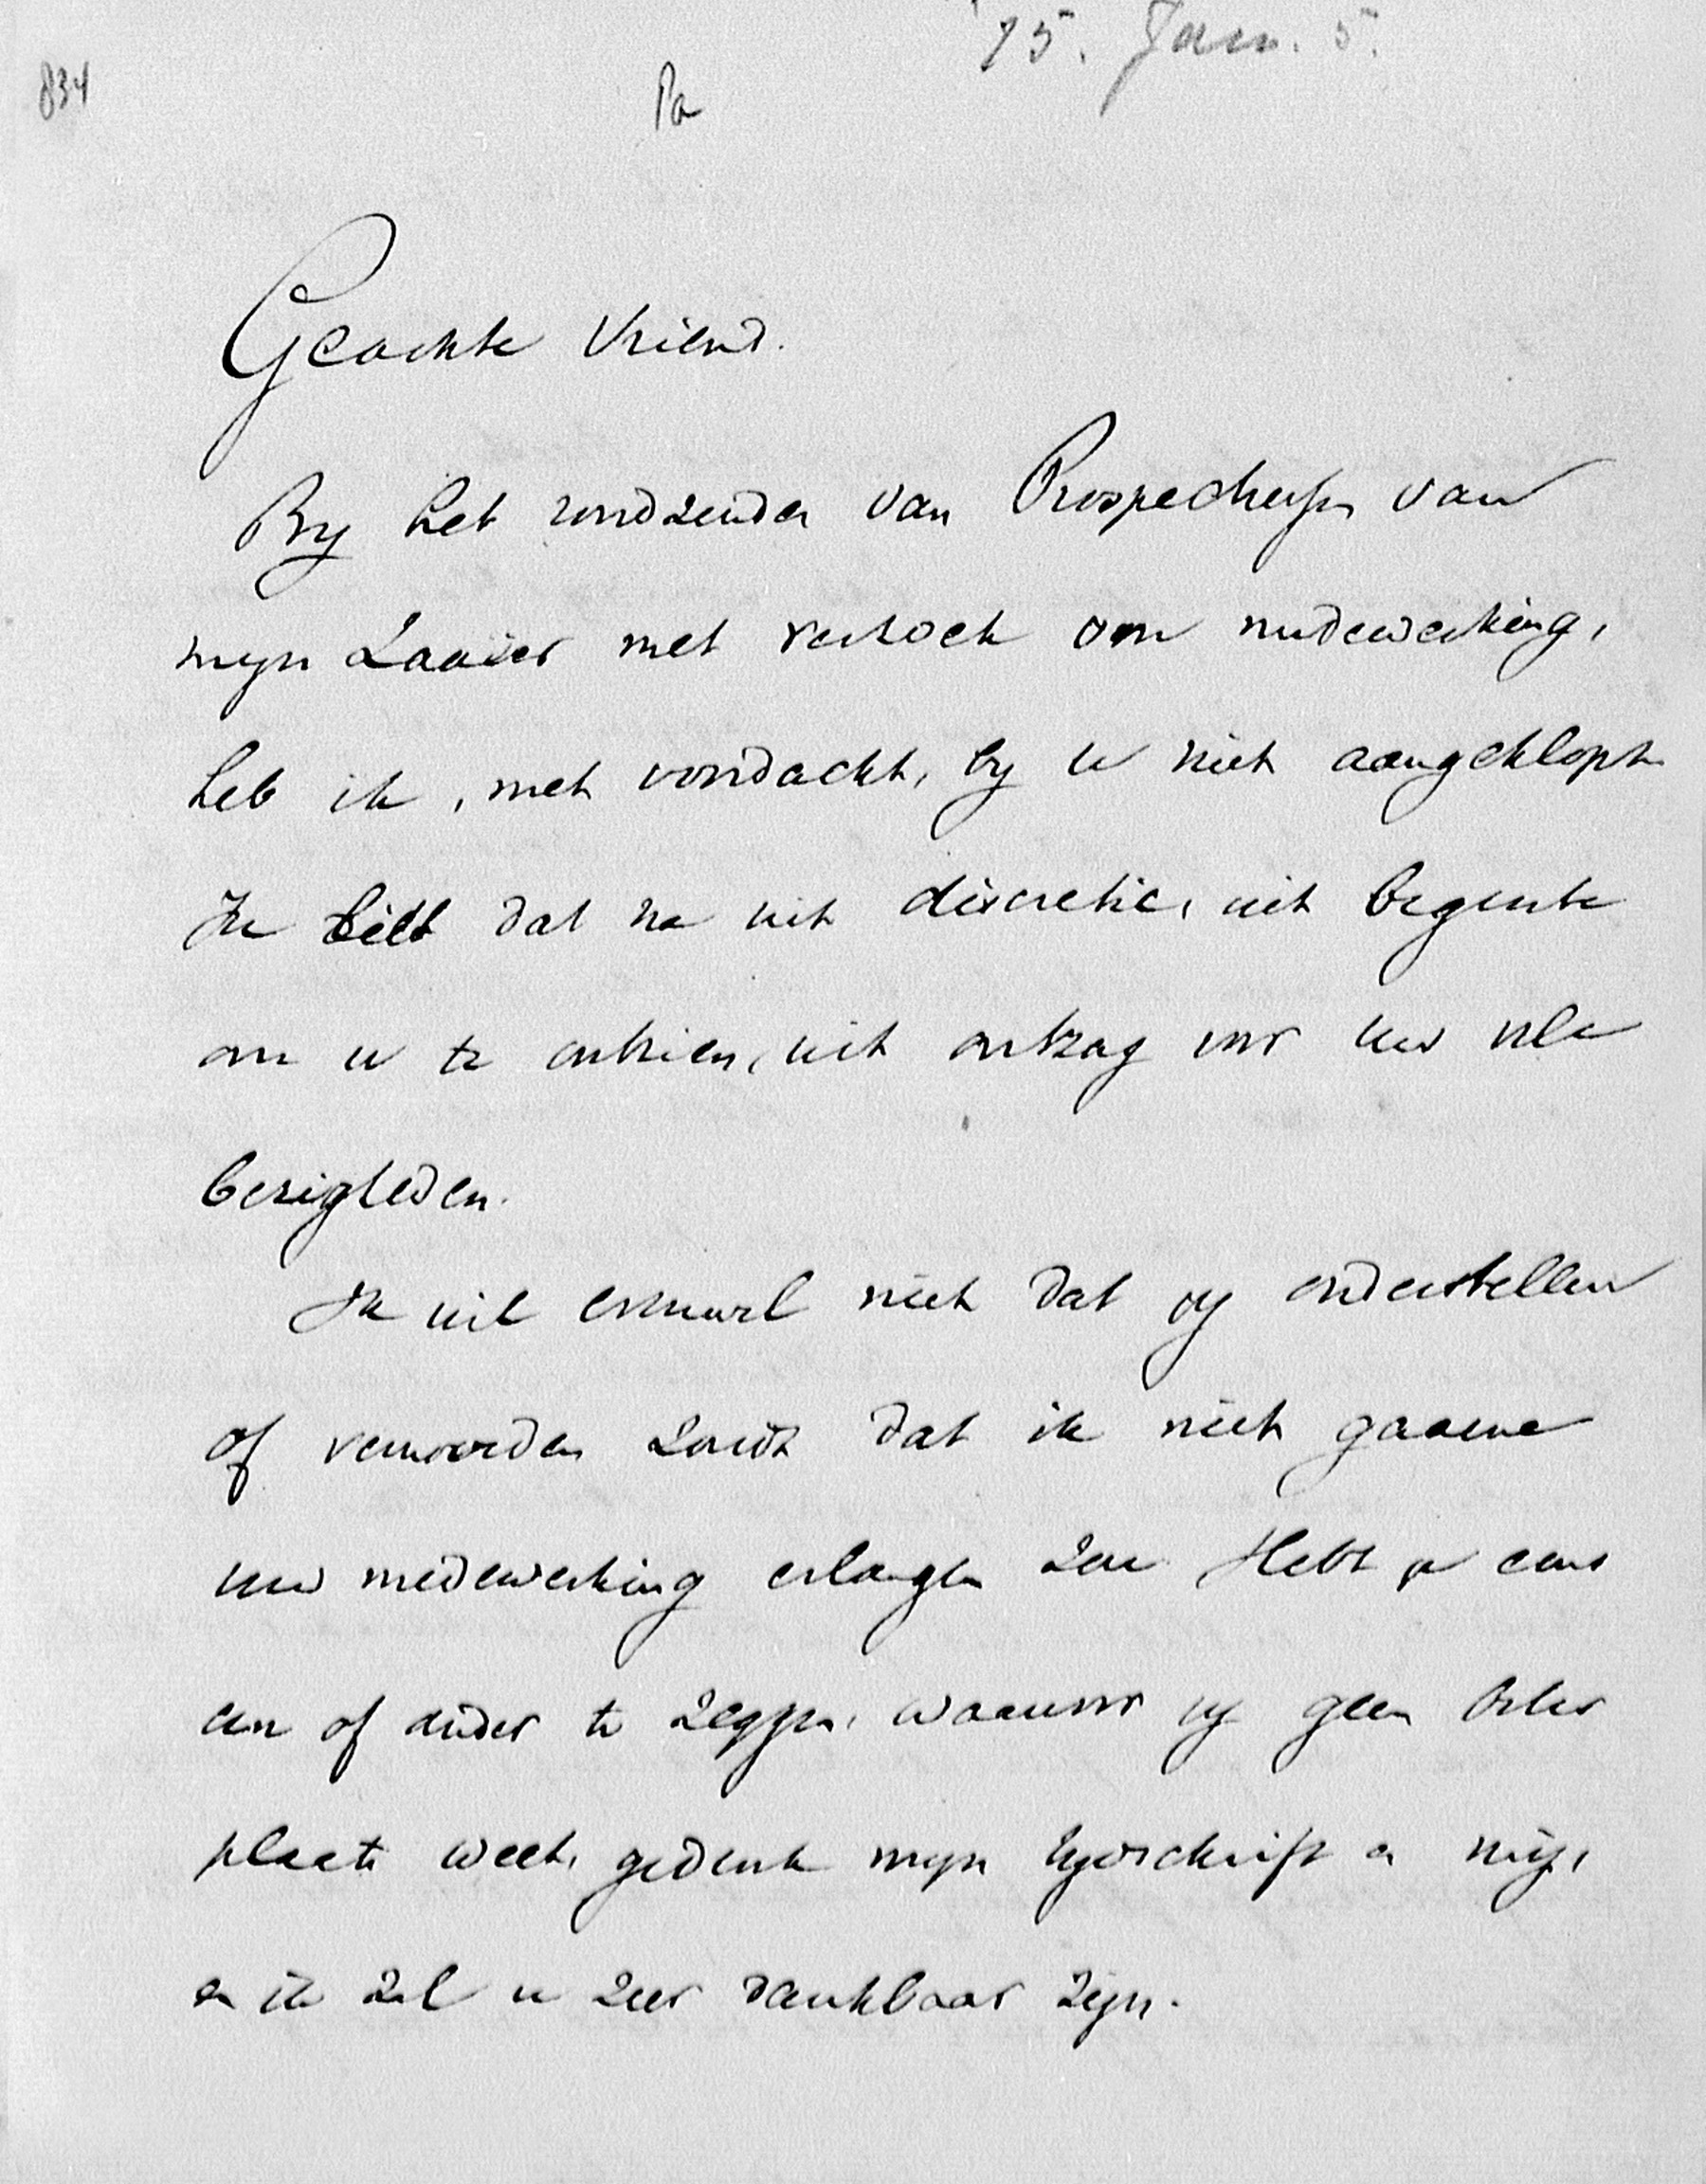 '75. Jan. 5.
834
Pa
Geachte Vriend.
By het rondzenden van Prospectussen van
mijn Zaaier met verzoek om medewerking,
heb ik, met voordacht, by u niet aangeklopt
Ik hield dat na uit discretie, uit begeerte
om u te ontzien, uit ontzag voor uw vele
bezigheden.
Ik wil evenwel niet dat gy onderstellen
of vermoeden zoudt dat ik niet gaarne
uw medewerking erlangen zou. Hebt gy eens
een of ander te zeggen, waarvoor gy geen beter
plaats weet, gedenk mijn tydschrift en mij,
en ik zal u zeer dankbaar zijn.